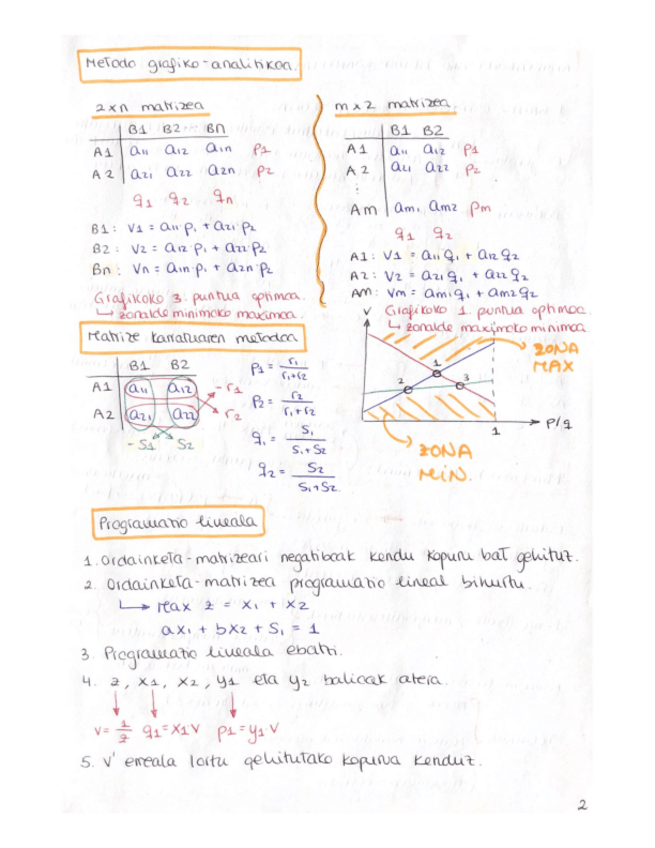 Metodo grafiko-analitikoa.
2xn matrizea
B1 B2 ... Bn
A1 a11 a12 a1n p1
A2 a21 a22 a2n p2
q1 q2 qn
B1: V1 = a11·p1 + a21·p2
B2: V2 = a12·p1 + a22·p2
Bn: Vn = a1n·p1 + a2n·p2
Grafikoko 3. puntua optimoa.
↳ zonalde minimoko maximoa.
mx2 matrizea.
B1 B2
A1 a11 a12 p1
A2 a21 a22 p2
⋮
Am am1 am2 pm
q1 q2
A1: V1 = a11q1 + a12q2
A2: V2 = a21q1 + a22q2
Am: Vm = am1q1 + am2q2
Grafikoko 1. puntua optimoa.
↳ zonalde maximoko minimoa
V
1
2
3
ZONA MAX
1
P/q
ZONA MiN.
Matrize karratuaren metodoa
B1 B2
A1 a11 a12 -r1
A2 a21 a22 r2
-S1 S2
p1 = r1/r1+r2
p2 = r2/r1+r2
q1 = S1/S1+S2
q2 = S2/S1+S2.
Programazio lineala
1. Ordainketa-matrizeari negatiboak kendu kopuru bat gehituz.
2. Ordainketa-matrizea programazio lineal bihurtu.
↳ Max z = x1 + x2
ax1 + bx2 + S1 = 1
3. Programazio lineala ebatzi.
4. z, x1, x2, y1 eta y2 balioak atera.
V = 1/z q1 = x1V p1 = y1·V
5. V' erreala lortu gehitutako kopurua kenduz.
2